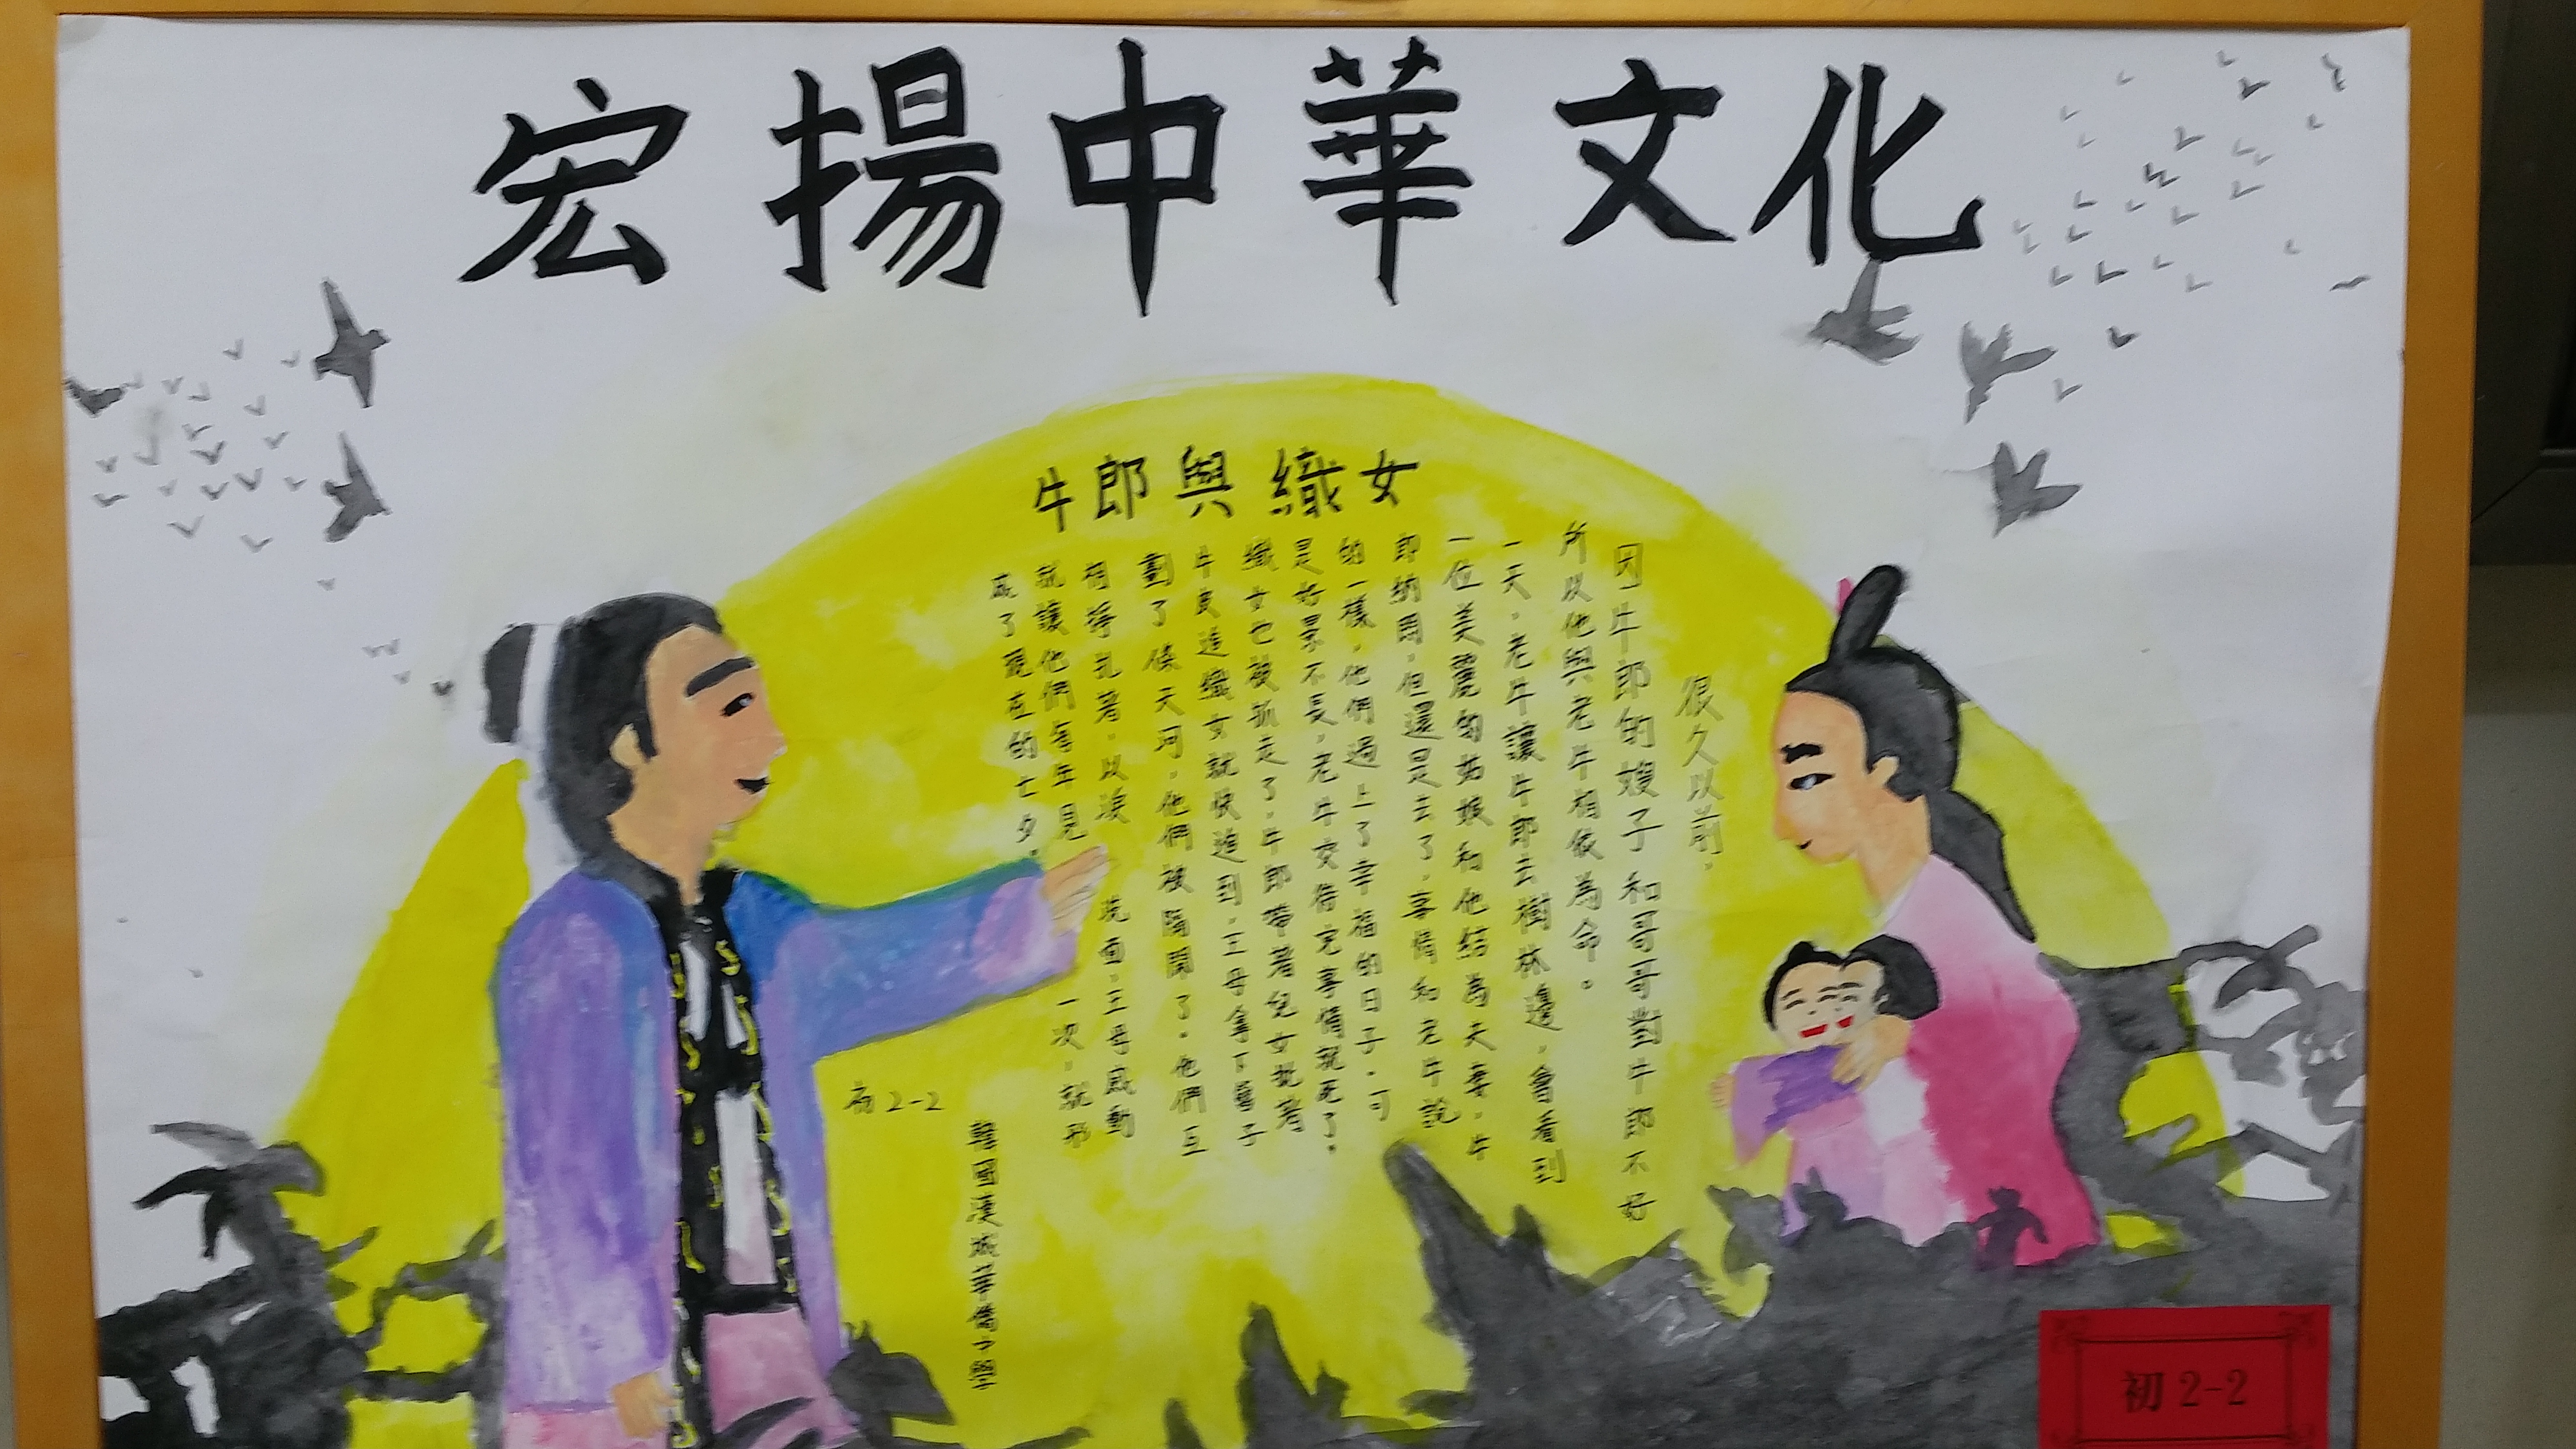 宏揚中華文化
牛郎與織女
很久以前，
因牛郎的嫂子和哥哥對牛郎不好
所以他與老牛相依為命。
一天，老牛讓牛郎去樹林邊，會看到
一位美麗的姑娘和他結為夫妻，牛
郎納悶，但還是去了，事情和老牛說
的一樣，他們過上了幸福的日子，可
是好景不長，老牛交待完事情就死了，
織女也被抓走了，牛郎帶著兒女挑著
牛皮追織女就快追到，王母拿下簪子
劃了條天河，他們被隔開了，他們互
相掙扎著，以淚洗面，王母感動
就讓他們每年見一次，就形
成了現在的七夕。
初2-2
韓國漢城華僑中學
初2-2